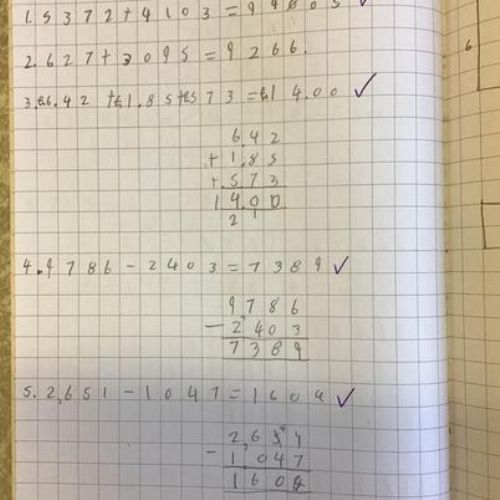 1. 5372 + 4103 =
2. 627 + 3095 = 9266.
3. £6.42 + £1.85 + £5 73 = £14.00 ✓
6.42
+ 1.85
+ 5 7 3
1 4.0 0
2 1
4. 9786 - 2403 = 7389 ✓
9786
- 2403
7389
5. 2,651 - 1047 = 1604 ✓
2651
- 1047
160
6